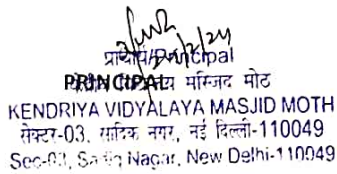 प्राचार्य/Principal
PRINCIPAL मस्जिद मोठ
KENDRIYA VIDYALAYA MASJID MOTH
सेक्टर-03, सादिक नगर, नई दिल्ली-110049
Sec-03, Sadiq Nagar, New Delhi-110049